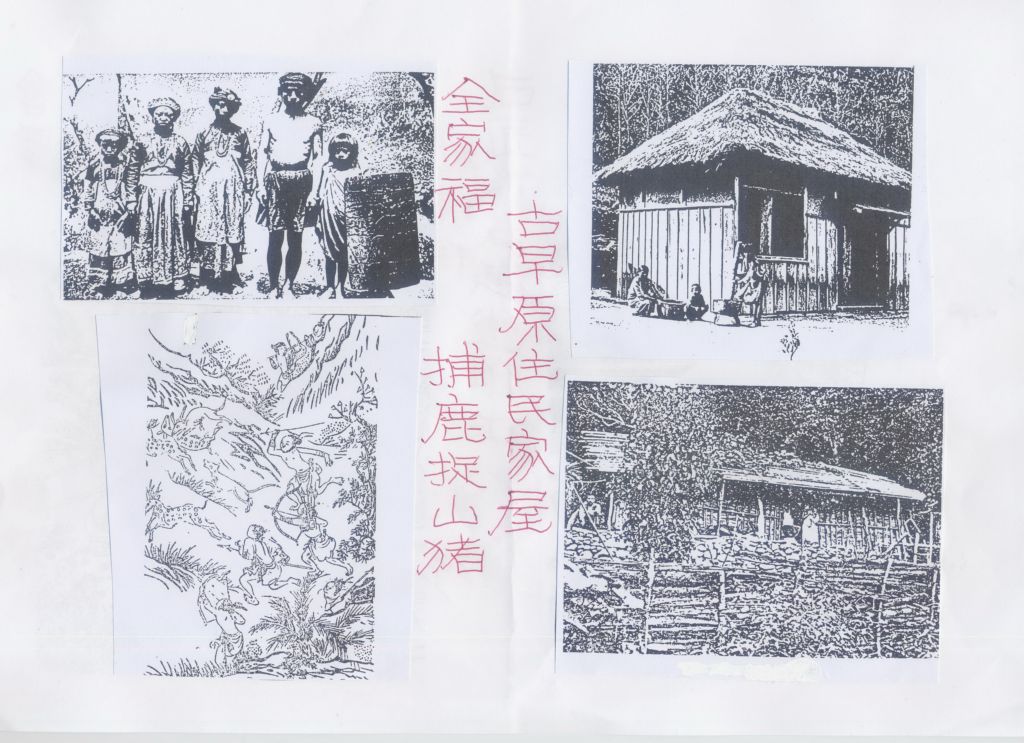 全家福
古早原住民家屋
捕鹿捉山豬